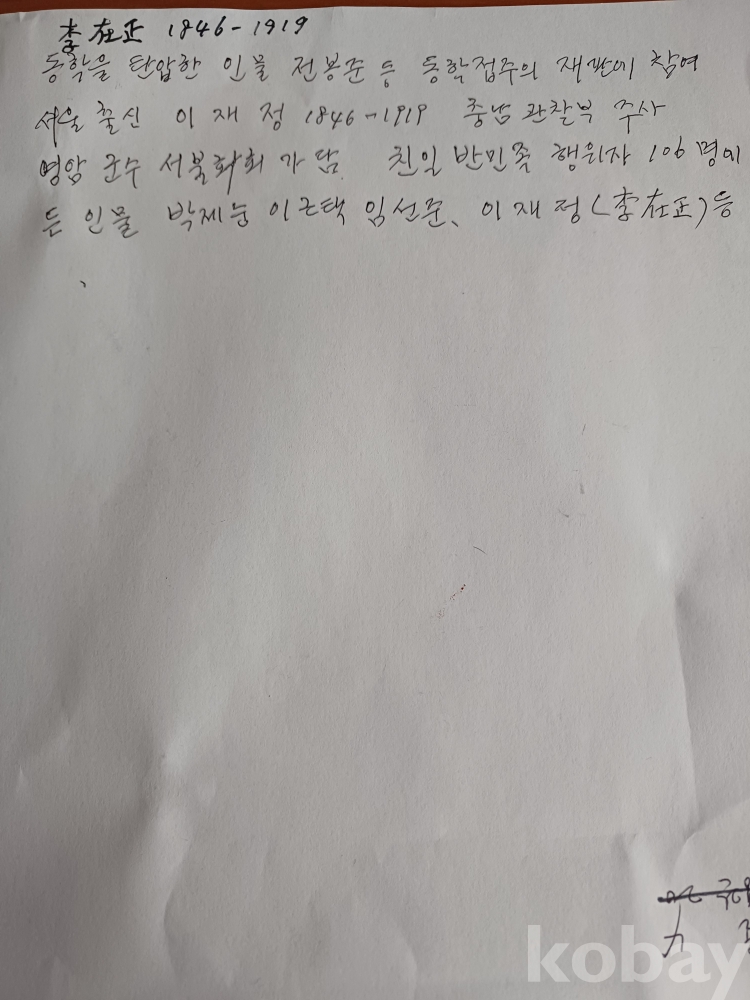 李在正 1846-1919
동학을 탄압한 인물 전봉준 등 동학접주의 재판에 참여
서울 출신 이재정 1846-1919 충남 관찰부 주사
영암 군수 서불화회 가담. 친일 반민족 행위자 106명에
든 인물 박제순 이근택 임선준、이재정(李在正)등
kobay